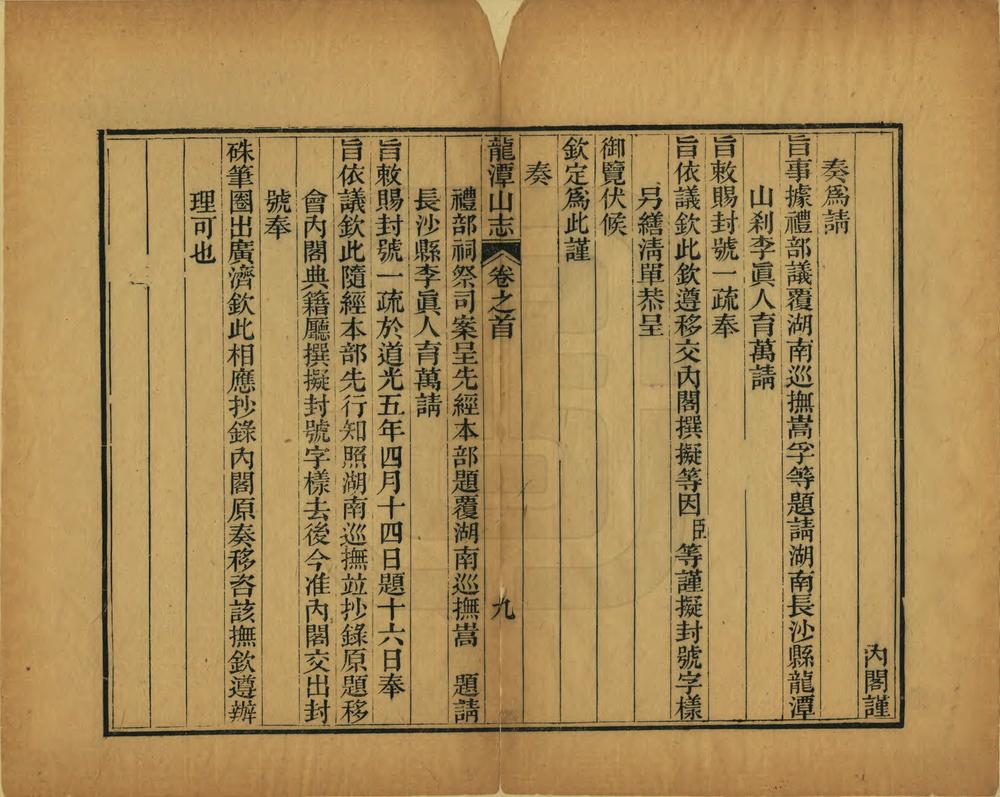 內閣謹
奏爲請
旨事據禮部議覆湖南巡撫嵩孚等題請湖南長沙縣龍潭
山刹李眞人育萬請
旨敕賜封號一疏奉
旨依議欽此欽遵移交內閣撰擬等因臣等謹擬封號字樣
另繕清單恭呈
御覽伏候
欽定爲此謹
奏
龍潭山志 卷之首 九
禮部祠祭司案呈先經本部題覆湖南巡撫嵩 題請
長沙縣李眞人育萬請
旨敕賜封號一疏於道光五年四月十四日題十六日奉
旨依議欽此隨經本部先行知照湖南巡撫並抄錄原題移
會內閣典籍廳撰擬封號字樣去後今准內閣交出封
號奉
硃筆圈出廣濟欽此相應抄錄內閣原奏移咨該撫欽遵辦
理可也